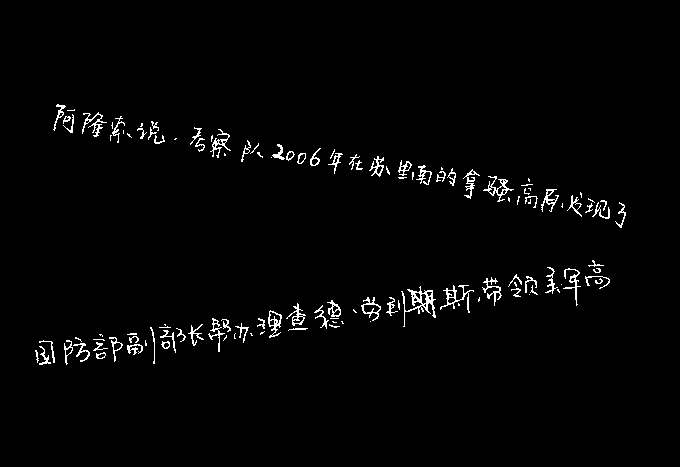 阿隆索说，考察队2006年在苏里南的拿骚高原发现了
国防部副部长帮办理查德·劳利斯，带领美军高